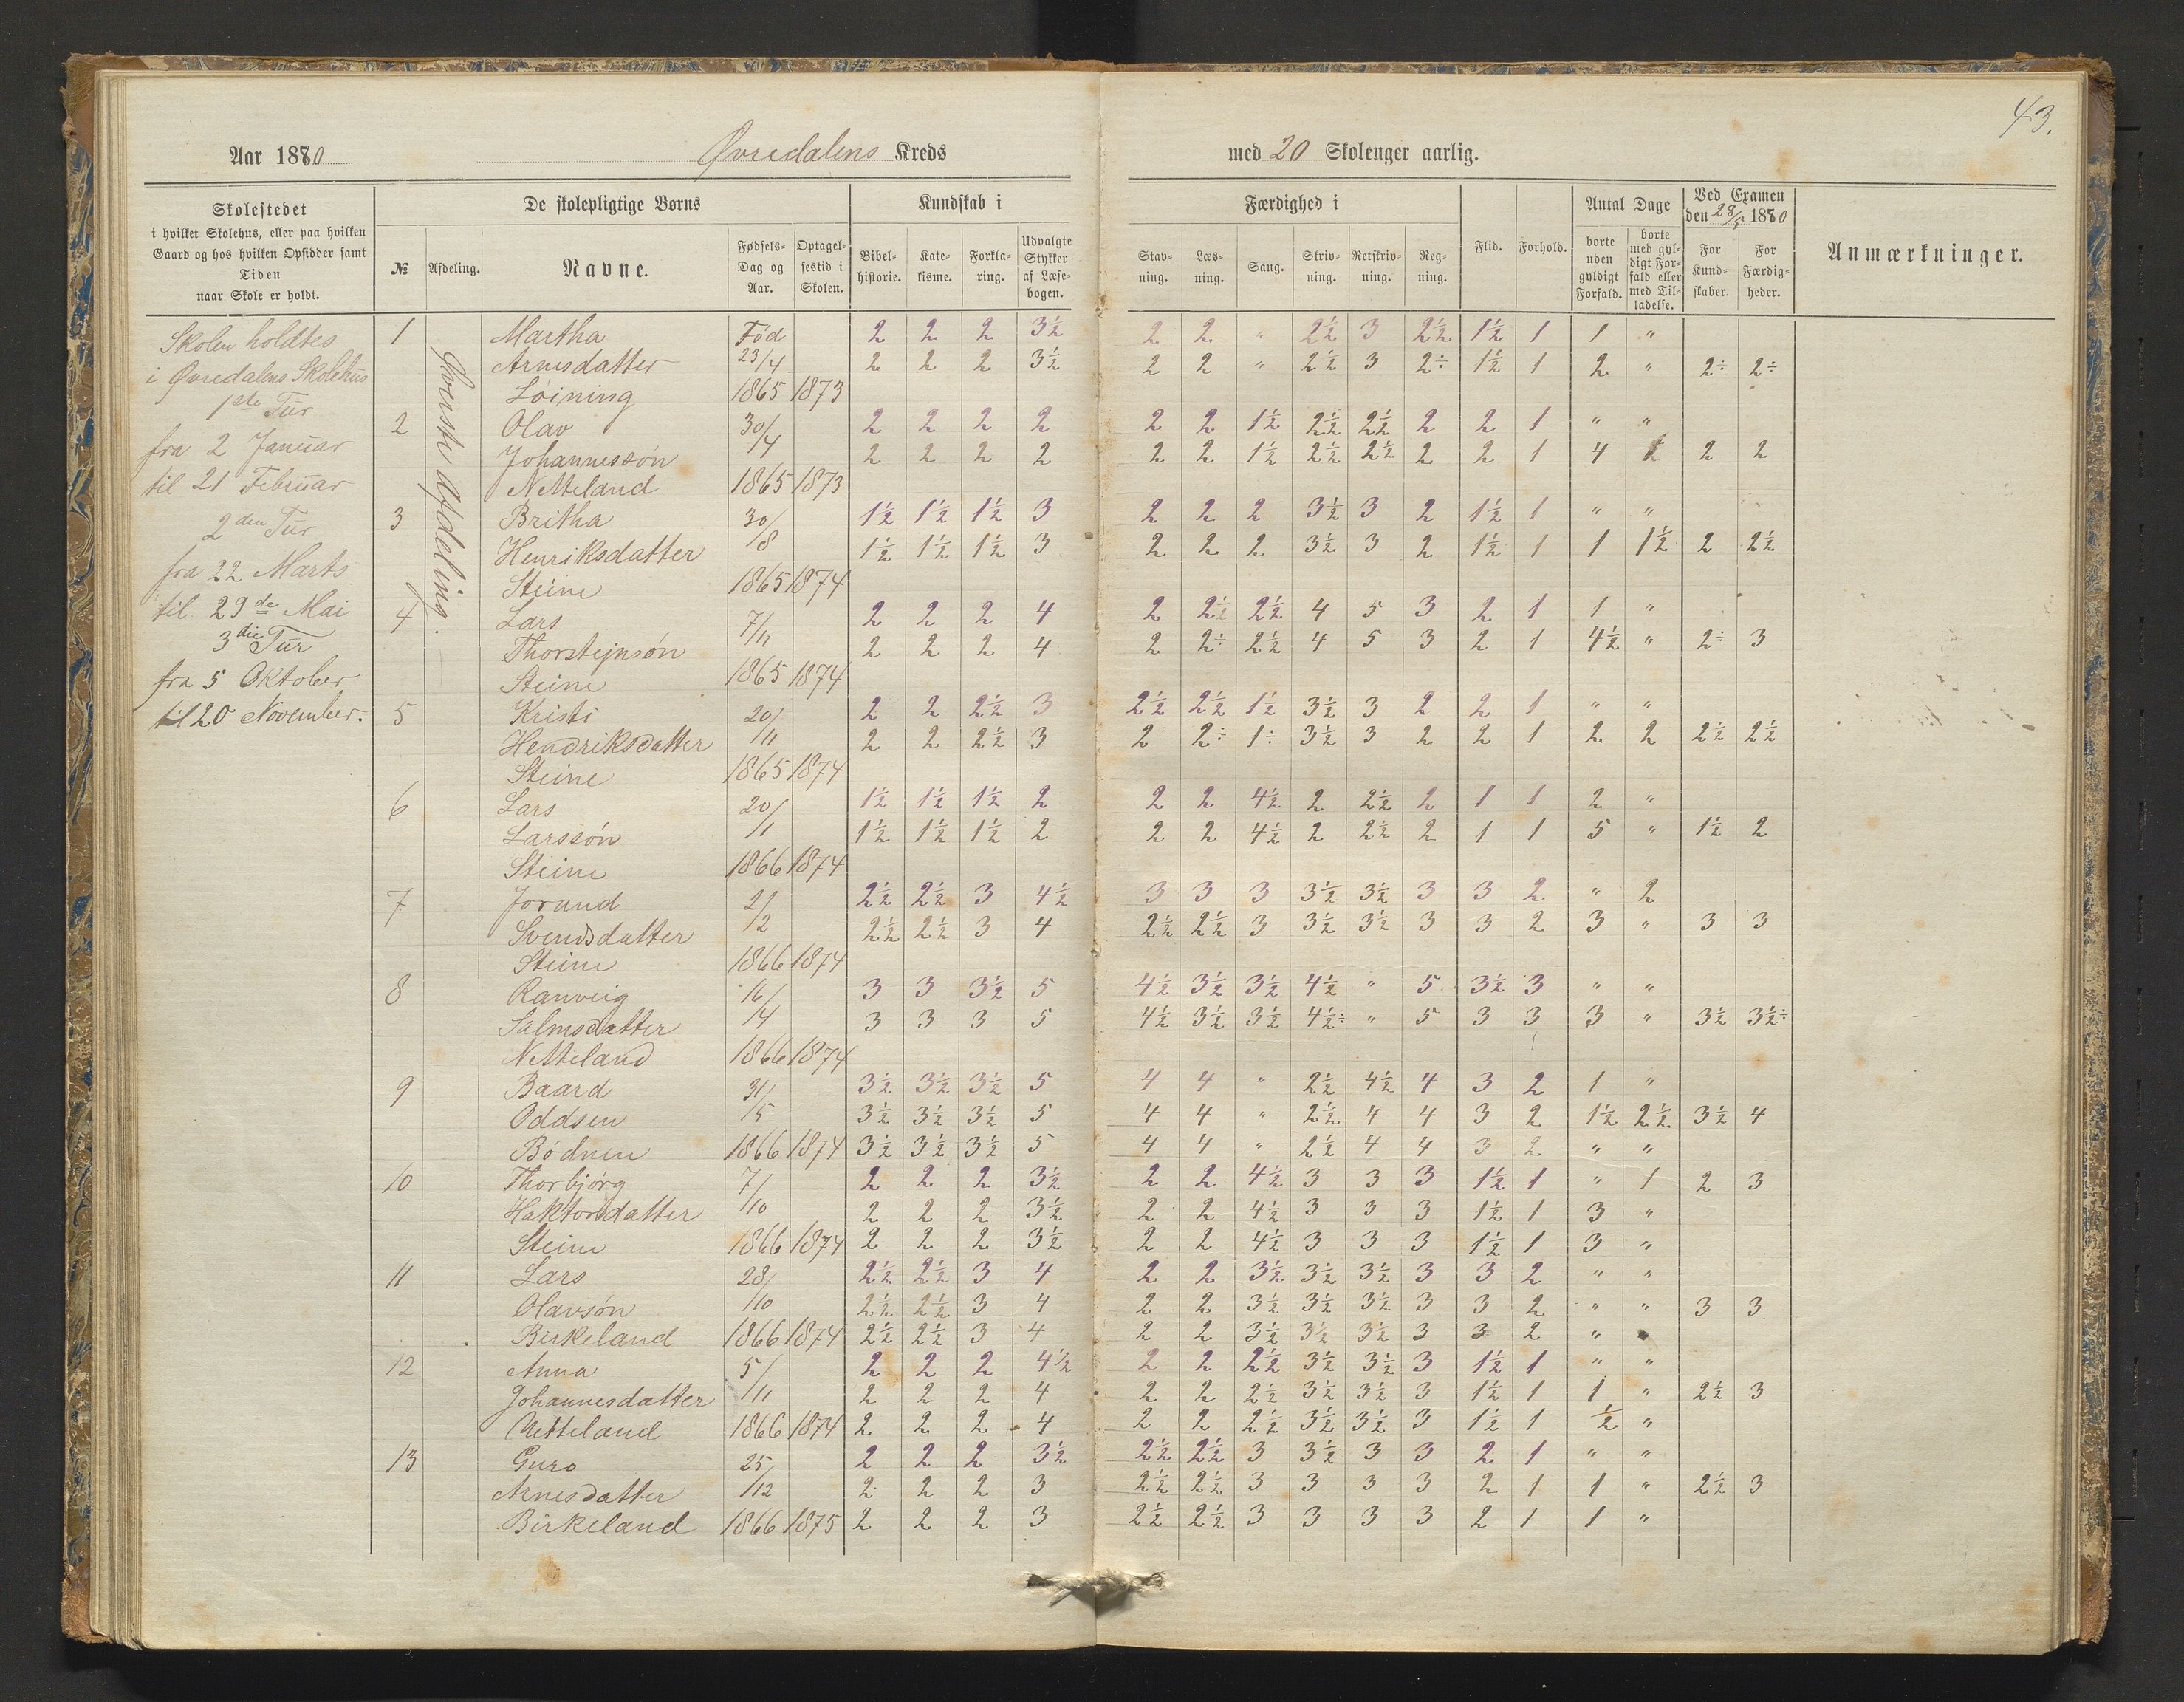 43.
Aar 1880 Øvredalens Kreds med 20 Skolenger aarlig.
Skolestedet
i hvilket Skolehus, eller paa hvilken
Gaard og hos hvilken Opsidder samt
Tiden
naar Skole er holdt.
De skolepligtige Børns
№ Afdeling. Navne. Fødsels-Dag og Aar. Optagel-sestid i Skolen.
Kundskab i
Bibel-historie. Kate-kisme. Forkla-ring. Udvalgte Stykker af Læse-bogen.
Færdighed i
Stav-ning. Læs-ning. Sang. Skriv-ning. Retskriv-ning. Reg-ning.
Flid. Forhold.
Antal Dage
borte uden gyldigt Forfald. borte med gyl-digt For-fald eller med Til-ladelse.
Ved Examen den 28/5 1880
For Kund-skaber. For Færdig-heder.
Anmærkninger.
Skolen holdtes
i Øvredalens Skolehus
1ste Tur
fra 2 Januar
til 21 Februar
2den Tur
fra 22 Marts
til 29de Mai
3die Tur
fra 5 Oktober
til 20 November.
Øverste Afdeling.
1 Martha Fød 2 2 2 3½ 2 2 " 2½ 3 2½ 1½ 1 1 "
Arnesdatter 23/4 2 2 2 3½ 2 2 " 2½ 3 2÷ 1½ 1 2 " 2÷ 2÷
Løining 1865 1873
2 Olav 30/4 2 2 2 2 2 2 1½ 2½ 2½ 2 2 1 " "
Johannessøn 2 2 2 2 2 2 1½ 2½ 2½ 2 2 1 4 2 2
Netteland 1865 1873
3 Britha 30/8 1½ 1½ 1½ 3 2 2 2 3½ 3 2 1½ 1 " "
Henriksdatter 1½ 1½ 1½ 3 2 2 2 3½ 3 2 1½ 1 1 1½ 2 2½
Steine 1865 1874
4 Lars 7/11 2 2 2 4 2 2½ 2½ 4 5 3 2 1 1 "
Thorstejnsøn 2 2 2 4 2 2÷ 2½ 4 5 3 2 1 4½ " 2÷ 3
Steine 1865 1874
5 Kristi 20/11 2 2 2½ 3 2½ 2½ 1½ 3½ 3 2 2 1 " "
Hendriksdatter 2 2 2½ 3 2 2÷ 1÷ 3½ 3 2 2 1 2 2 2½ 2½
Steine 1865 1874
6 Lars 20/1 1½ 1½ 1½ 2 2 2 4½ 2 2½ 2 1 1 2 "
Larssøn 1½ 1½ 1½ 2 2 2 4½ 2 2½ 2 1 1 5 " 1½ 2
Steine 1866 1874
7 Jorund 2/2 2½ 2½ 3 4½ 3 3 3 3½ 3½ 3 3 2 " 2
Svendsdatter 2½ 2½ 3 4 2½ 2½ 3 3½ 3½ 3 3 2 3 " 3 3
Steine 1866 1874
8 Ranveig 16/4 3 3 3½ 5 4½ 3½ 3½ 4½ " 5 3½ 3 " "
Salmsdatter 3 3 3 5 4½ 3½ 3½ 4½÷ " 5 3 3 3 " 3½ 3½÷
Netteland 1866 1874
9 Baard 31/5 3½ 3½ 3½ 5 4 4 " 2½ 4½ 4 3 2 1 "
Oddsen 3½ 3½ 3½ 5 4 4 " 2½ 4 4 3 2 1½ 2½ 3½ 4
Bødnen 1866 1874 3½ 3½ 3½ 5 4 4 " 2½ 4 4 3 2 " "
10 Thorbjørg 7/10 2 2 2 3½ 2 2 4½ 3 3 3 1½ 1 " 1 2 3
Haktorsdatter 2 2 2 3½ 2 2 4½ 3 3 3 1½ 1 3 "
Steine 1866 1874 2 2 2 3½ 2 2 4½ 3 3 3 1½ 1 3 "
11 Lars 28/10 2½ 2½ 3 4 2 2 3½ 3½ 3½ 3 3 2 " "
Olavsøn 2½ 2½ 3 4 2 2 3½ 3½ 3½ 3 3 2 " " 3 3
Birkeland 1866 1874 2½ 2½ 3 4 2 2 3½ 3½ 3½ 3 3 2 "
12 Anna 5/11 2 2 2 4½ 2 2 2½ 3½ 3½ 3 1½ 1 " "
Johannesdatter 2 2 2 4 2 2 2½ 3½ 3½ 3 1½ 1 1 " 2½ 3
Netteland 1866 1874 2 2 2 4 2 2 2½ 3½ 3½ 3 1½ 1 ½ "
13 Guro 25/12 2 2 2 3½ 2½ 2½ 3 3½ 3 3 2 1 " "
Arnesdatter 2 2 2 3 2½ 2½ 3 3 3 3 2 1 1 " 2½ 3
Birkeland 1866 1875 2 2 2 3 2½ 2½ 3 3 3 3 2 1 1 "